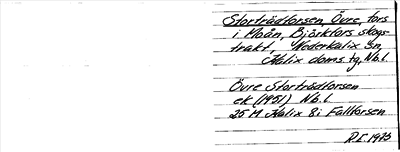 Storträdforsen, Övre, fors
i Moån, Björkfors skogs
trakt, Nederkalix sn,
Kalix doms. tg, Nb.l.
Övre Storträdforsen
ek (1951) Nb. l
25 M Kalix 8i Fallforsen
R.E. 1975